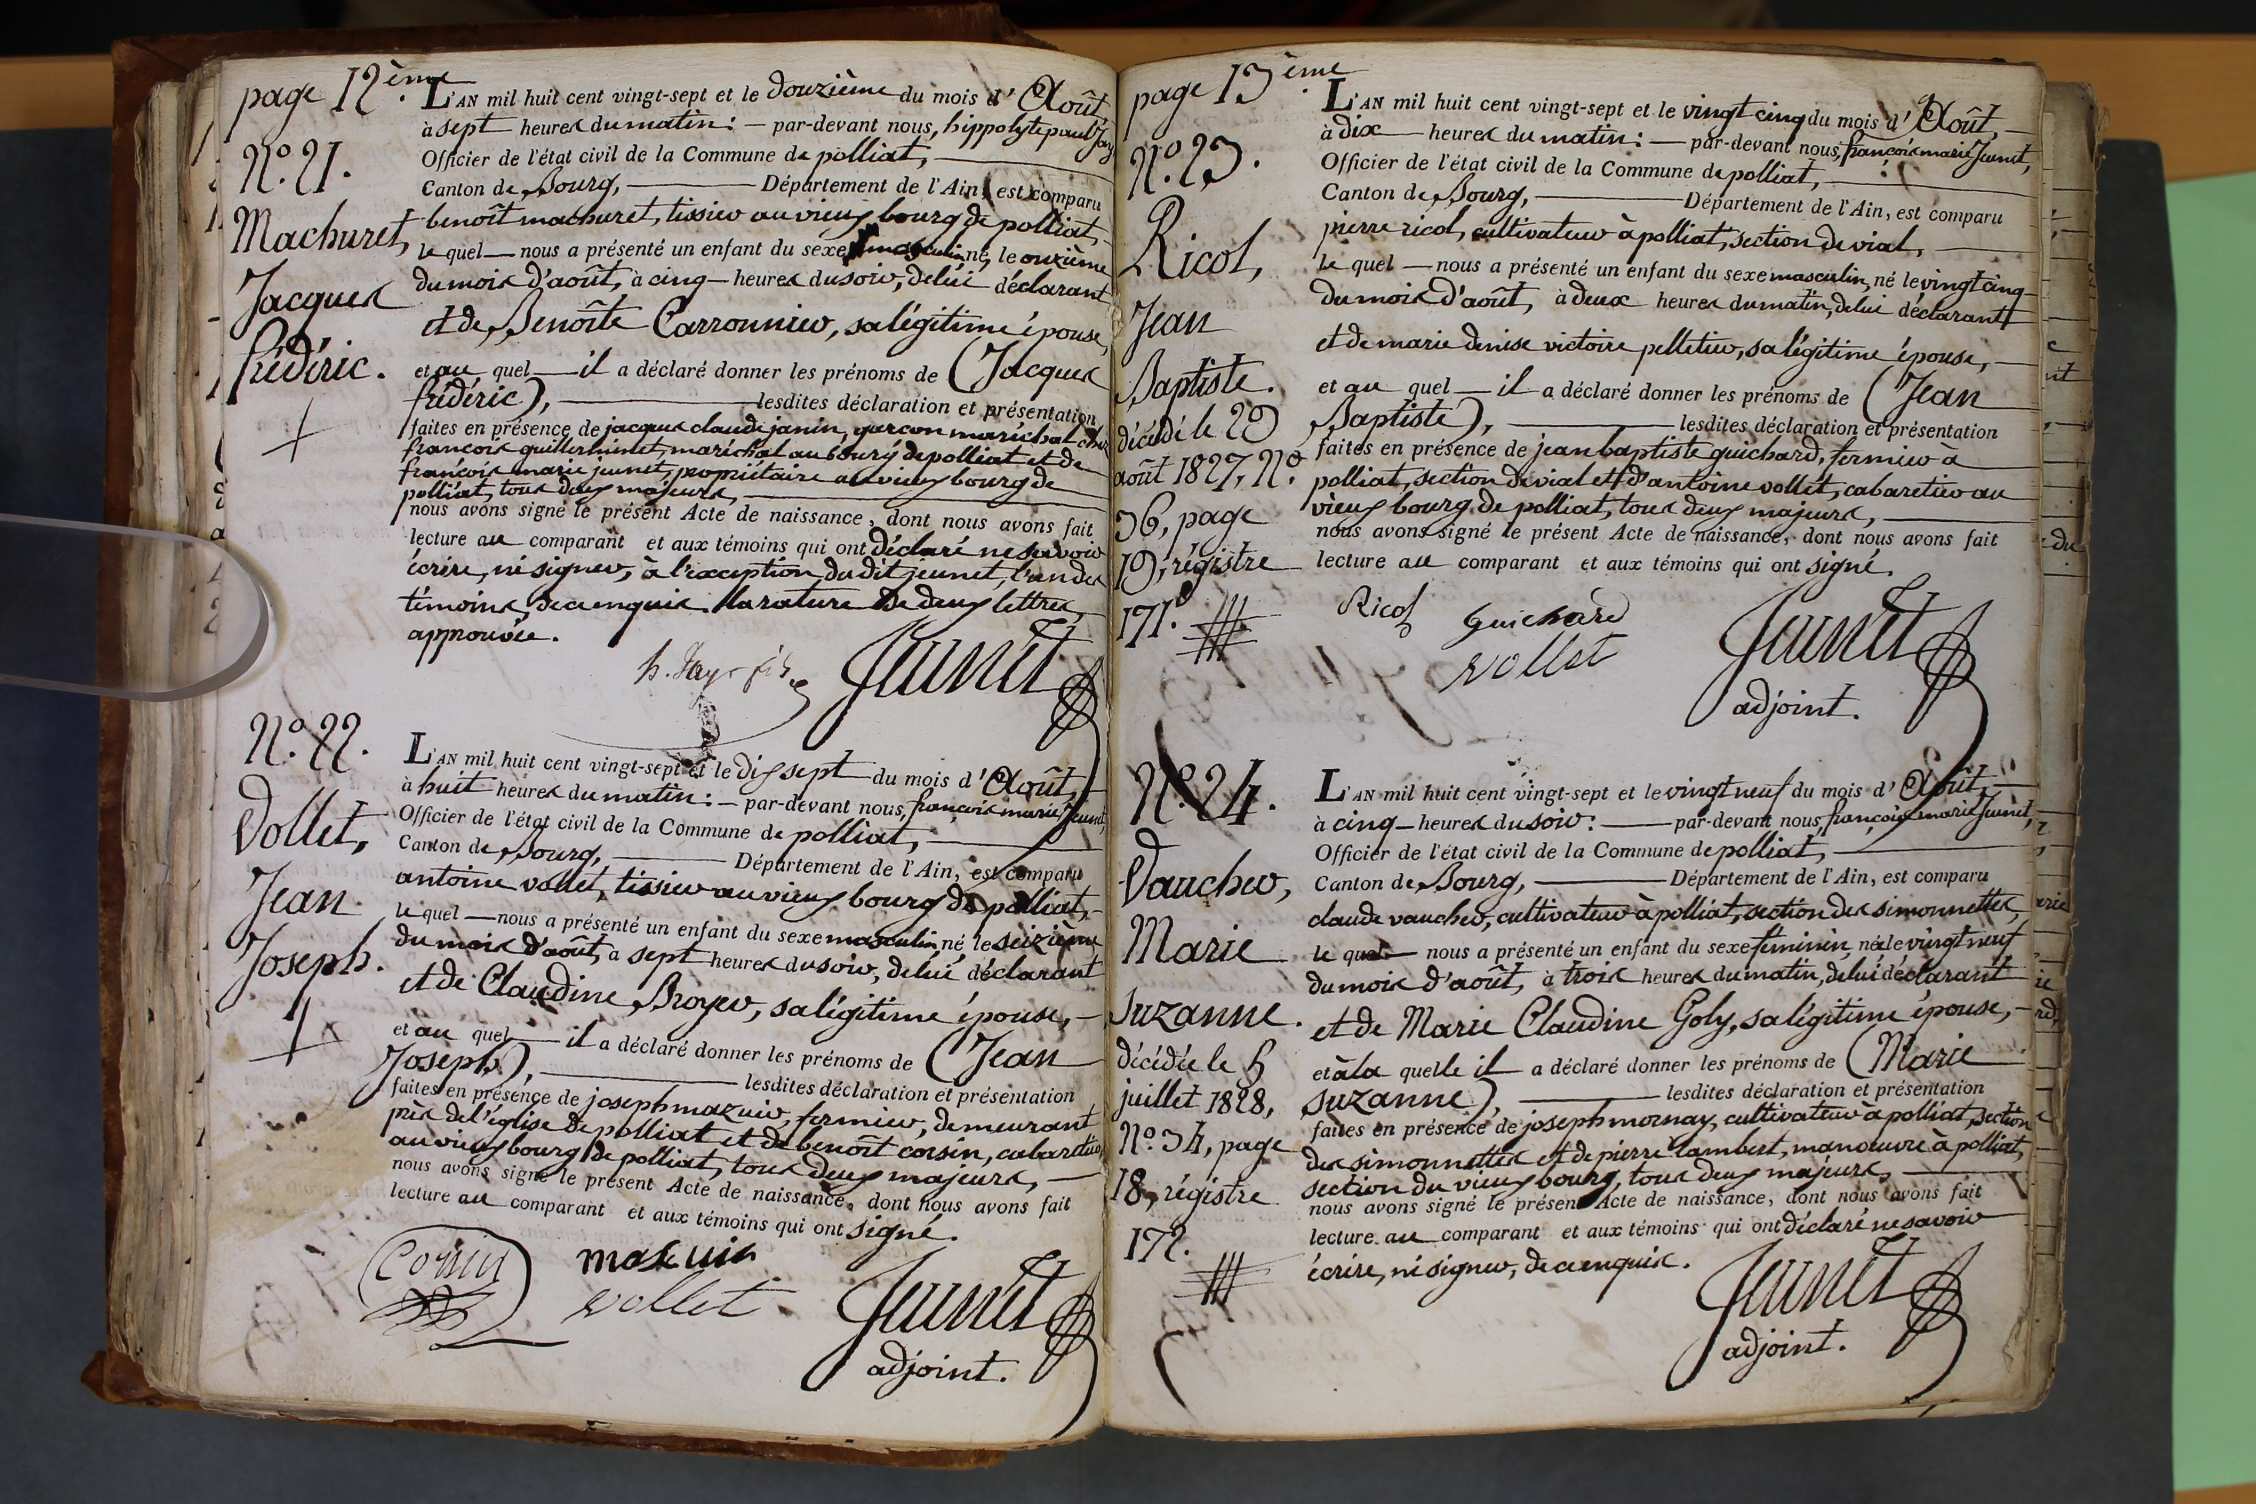 page 12ème.
N.° 21.
Machuret,
Jacques
frédéric.
L'AN mil huit cent vingt-sept et le douzième du mois d'Août,
à sept heures du matin : — par-devant nous, hippolyte paul Jay
Officier de l'état civil de la Commune de polliat,
Canton de Bourg, — Département de l'Ain, est comparu
benoît machuret, tissier au vieux bourg de polliat,
le quel — nous a présenté un enfant du sexe masculin, né, le onzième
du mois d'août, à cinq — heures du soir, de lui déclarant
et de Benoîte Carronnier, sa légitime épouse,
et au quel — il a déclaré donner les prénoms de (Jacques
frédéric), — lesdites déclaration et présentation
faites en présence de jacques claude janin, garçon maréchal chez
françois guillerminet, maréchal au bourg de polliat et de
françois marie jeunet, propriétaire au vieux bourg de
polliat, tous deux majeurs, —
nous avons signé le présent Acte de naissance, dont nous avons fait
lecture au comparant et aux témoins qui ont déclaré ne savoir
écrire, ni signer, à l'exception du dit jeunet, l'un des
témoins, de ce enquis. la rature de deux lettres,
approuvée.
h. Jayr fils Jeunet
N.° 22.
Vollet,
Jean
Joseph.
L'AN mil huit cent vingt-sept et le dix sept du mois d'Août,
à huit heures du matin : — par-devant nous, françois marie Jeunet,
Officier de l'état civil de la Commune de polliat,
Canton de Bourg, — Département de l'Ain, est comparu
antoine vollet, tissier au vieux bourg de polliat,
le quel — nous a présenté un enfant du sexe masculin, né, le seizième
du mois d'août, à sept heures du soir, de lui déclarant
et de Claudine Broyer, sa légitime épouse,
et au quel — il a déclaré donner les prénoms de (Jean
Joseph), — lesdites déclaration et présentation
faites en présence de joseph mazuir, fermier, demeurant
près de l'église de polliat et de benoît corsin, cabaretier
au vieux bourg de polliat, tous deux majeurs, —
nous avons signé le présent Acte de naissance, dont nous avons fait
lecture au comparant et aux témoins qui ont signé.
Corsin masuir
vollet Jeunet
adjoint.
page 13ème.
N.° 23.
Ricol,
Jean
Baptiste.
décédé le 29
août 1827, N.°
36, page
19, régistre
171.
L'AN mil huit cent vingt-sept et le vingt cinq du mois d'Août,
à dix — heures du matin : — par-devant nous, françois marie Jeunet,
Officier de l'état civil de la Commune de polliat,
Canton de Bourg, — Département de l'Ain, est comparu
pierre ricol, cultivateur à polliat, section de vial,
le quel — nous a présenté un enfant du sexe masculin, né le vingt cinq
du mois d'août, à deux heures du matin, de lui déclarant
et de marie denise victoire pelletier, sa légitime épouse, —
et au quel — il a déclaré donner les prénoms de (Jean
Baptiste), — lesdites déclaration et présentation
faites en présence de jean baptiste guichard, fermier à
polliat, section de vial et d'antoine vollet, cabaretier au
vieux bourg de polliat, tous deux majeurs, —
nous avons signé le présent Acte de naissance, dont nous avons fait
lecture au comparant et aux témoins qui ont signé.
Ricol guichard
vollet Jeunet
adjoint.
N.° 24.
Vaucher,
Marie
suzanne.
décédée le 5
juillet 1828,
N.° 34, page
18, régistre
172.
L'AN mil huit cent vingt-sept et le vingt neuf du mois d'Août,
à cinq — heures du soir : — par-devant nous, françois marie Jeunet,
Officier de l'état civil de la Commune de polliat,
Canton de Bourg, — Département de l'Ain, est comparu
claude vaucher, cultivateur à polliat, section des simonnettes,
le quel — nous a présenté un enfant du sexe féminin, née le vingt neuf
du mois d'août, à trois heures du matin, de lui déclarant
et de Marie Claudine Goly, sa légitime épouse, —
et à la quelle il — a déclaré donner les prénoms de (Marie
suzanne), — lesdites déclaration et présentation
faites en présence de joseph mornay, cultivateur à polliat, section
des simonnettes et de pierre lambert, manoeuvre à polliat,
section du vieux bourg, tous deux majeurs, —
nous avons signé le présent Acte de naissance, dont nous avons fait
lecture au comparant et aux témoins qui ont déclaré ne savoir
écrire, ni signer, de ce enquis.
Jeunet
adjoint.